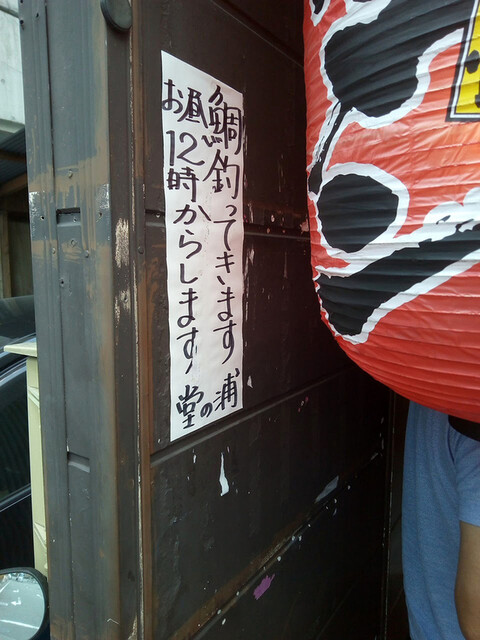 鯛釣ってきます
お昼12時からします
浦の堂